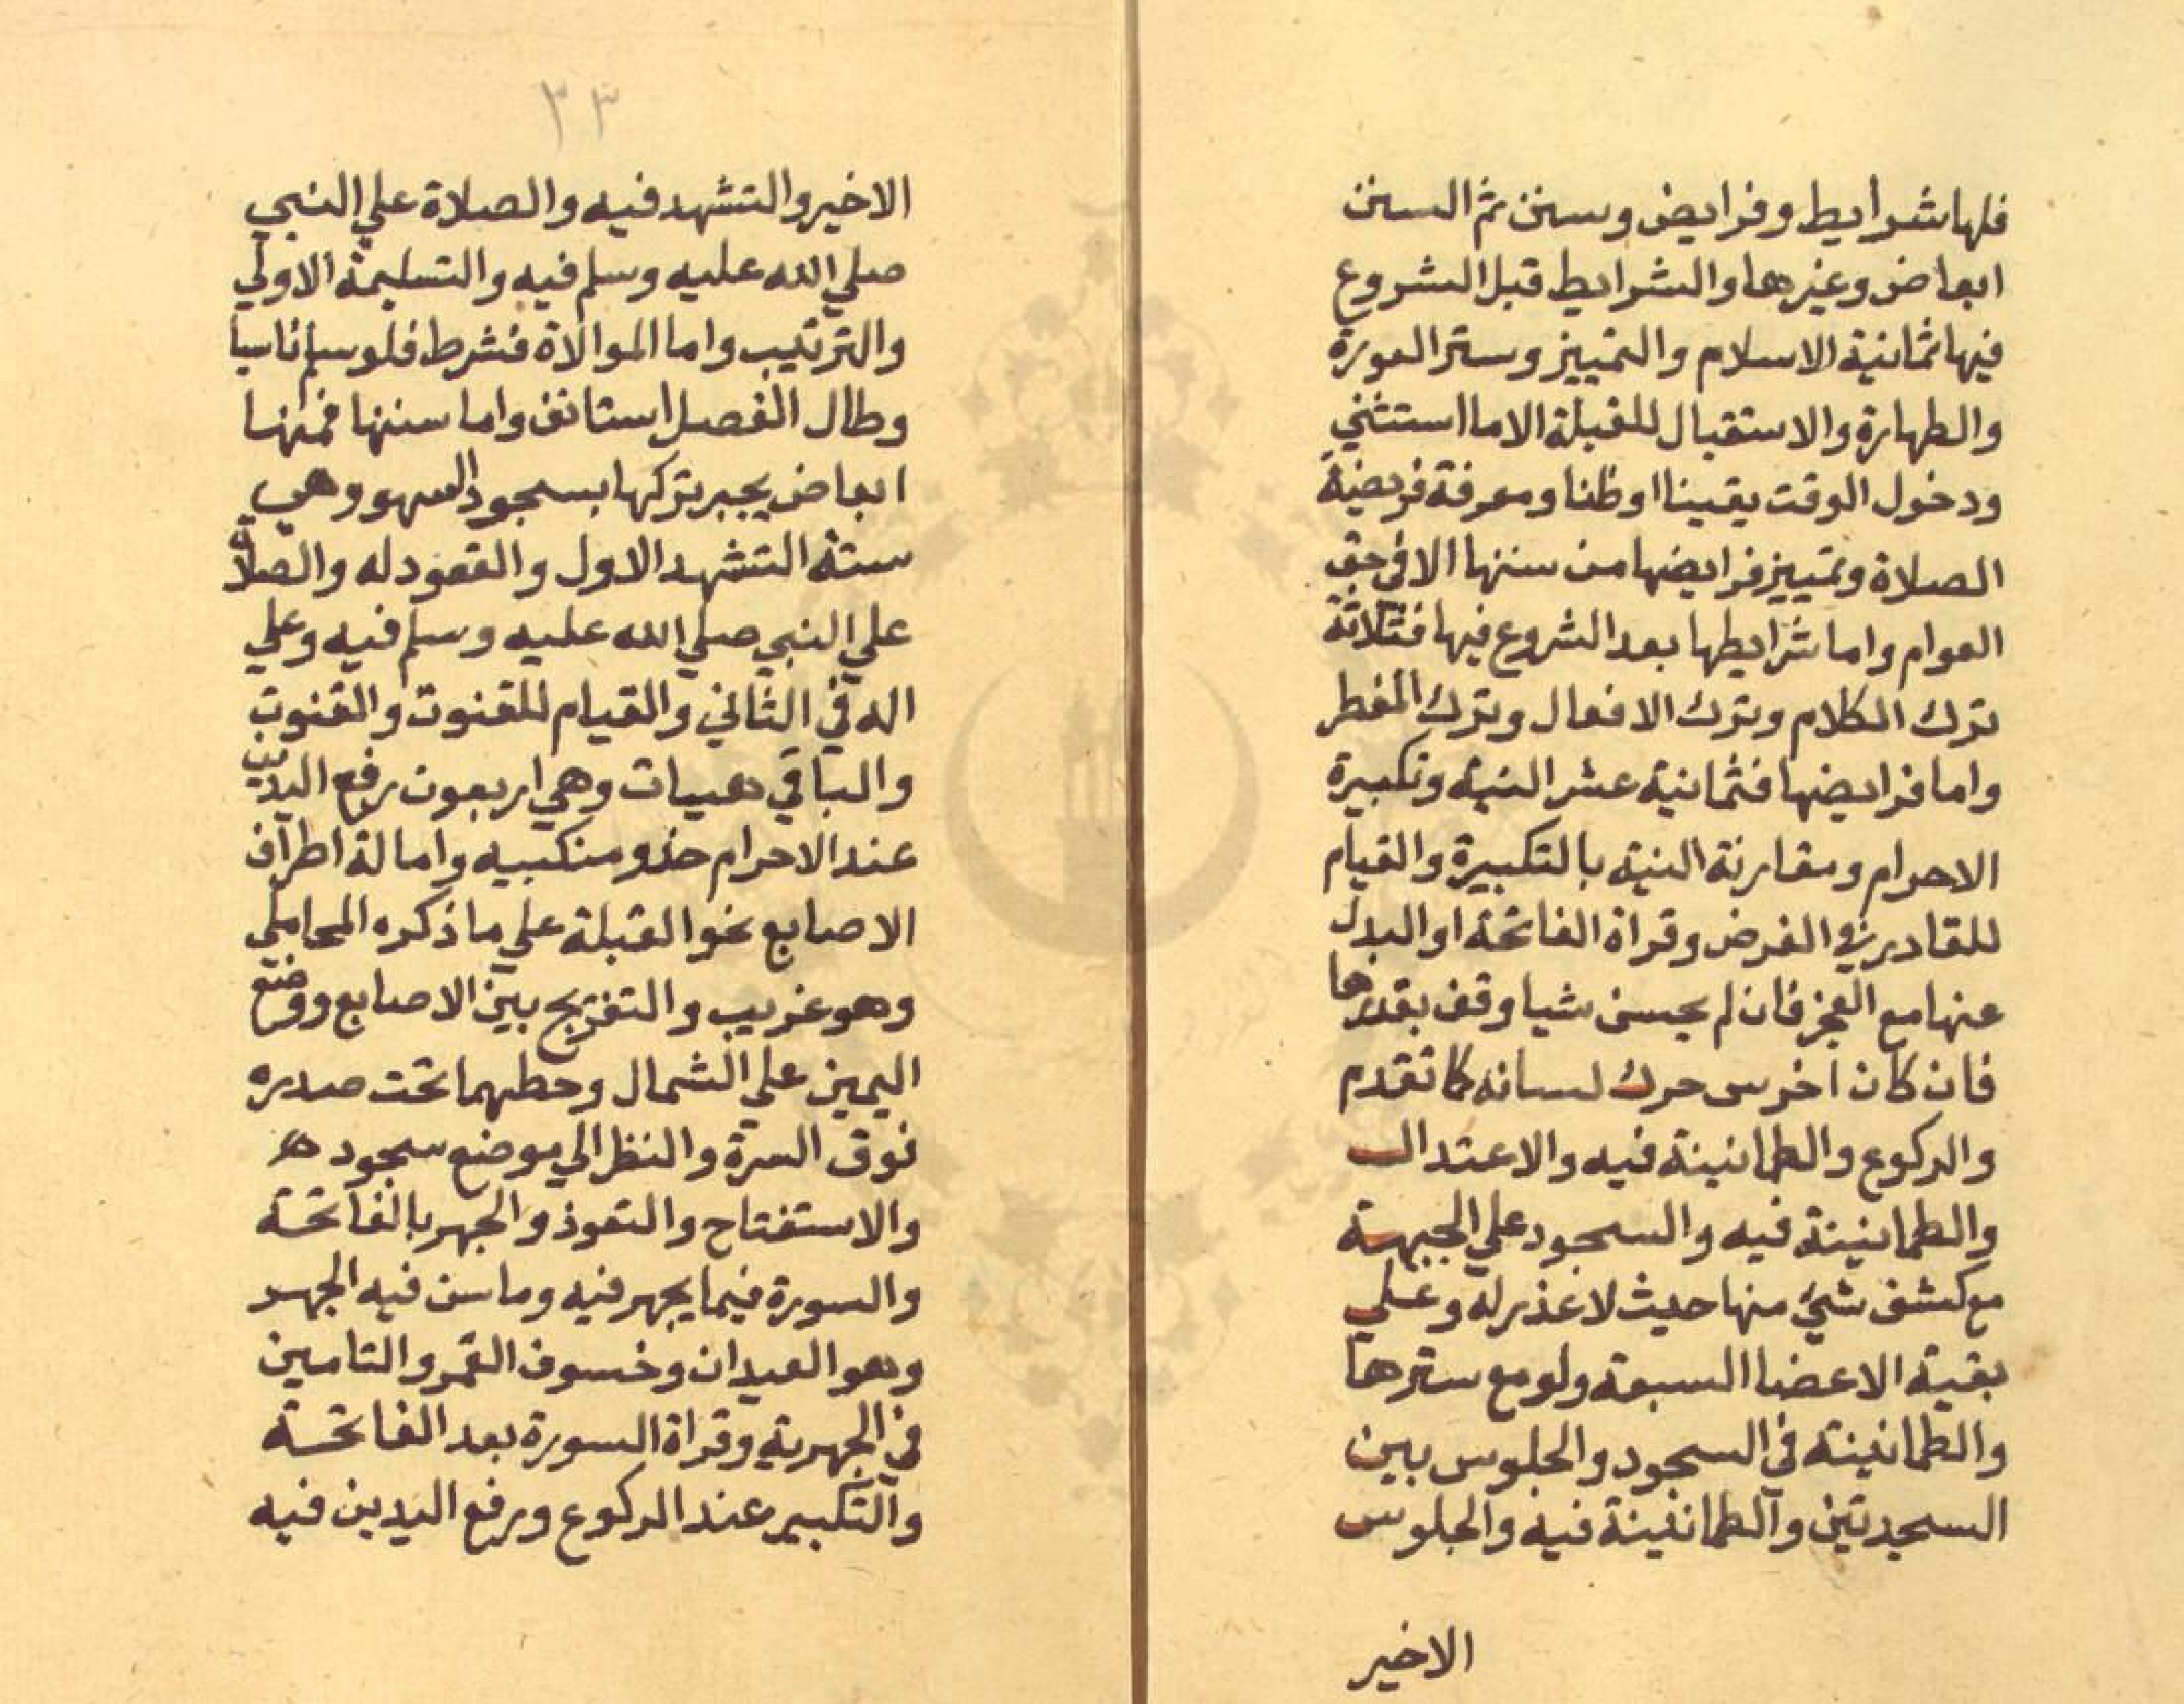 فلها شرايط وفرايض وسنن ثم السنن
ابعاض وغيرها والشرايط قبل الشروع
فيها ثمانية الاسلام والتمييز وستر العورة
والطهارة والاستقبال للقبلة الا ما استثني
ودخول الوقت يقينا اوظنا ومعرفة فريضية
الصلاة وتمييز فرايضها من سننها الا في حق
العوام واما شرايطها بعد الشروع فيها فثلاثة
ترك الكلام وترك الافعال وترك المفطر
واما فرايضها فثمانية عشر النية وتكبيرة
الاحرام ومقارنة النية بالتكبيرة والقيام
للقادر في الفرض وقراة الفاتحة او البدل
عنها مع العجز فان لم يحسن شيا وقف بقدرها
فان كان اخرس حرك لسانه كما تقدم
والركوع والطمانينة فيه والاعتدال
والطمانينة فيه والسجود علي الجبهة
مع كشف شيء منها حيث لا عذر له وعلي
بقية الاعضا السبعة ولو مع سترها
والطمانينة في السجود والجلوس بين
السجدتين والطمانينة فيه والجلوس
الاخير
٣٣
الاخير والتشهد فيه والصلاة علي النبي
صلي الله عليه وسلم فيه والتسليمة الاولي
والترتيب واما الموالاة فشرط فلو سلم ناسيا
وطال الفصل استانف واما سننها فمنها
ابعاض يجبر تركها بسجود السهو وهي
ستة التشهد الاول والقعود له والصلاة
علي النبي صلي الله عليه وسلم فيه وعلي
اله في الثاني والقيام للقنوت والقنوت
والباقي هييات وهي اربعون رفع اليدين
عند الاحرام حذو منكبيه وامالة اطراف
الاصابع نحو القبلة علي ما ذكره المحاملي
وهو غريب والتفريج بين الاصابع ووضع
اليمين علي الشمال وحطهما تحت صدره
فوق السرة والنظر الي موضع سجوده
والاستفتاح والتعوذ والجهر بالفاتحة
والسورة فيما يجهر فيه وما سن فيه الجهر
وهو العيدان وخسوف القمر والتامين
في الجهرية وقراة السورة بعد الفاتحة
والتكبير عند الركوع ورفع اليدين فيه